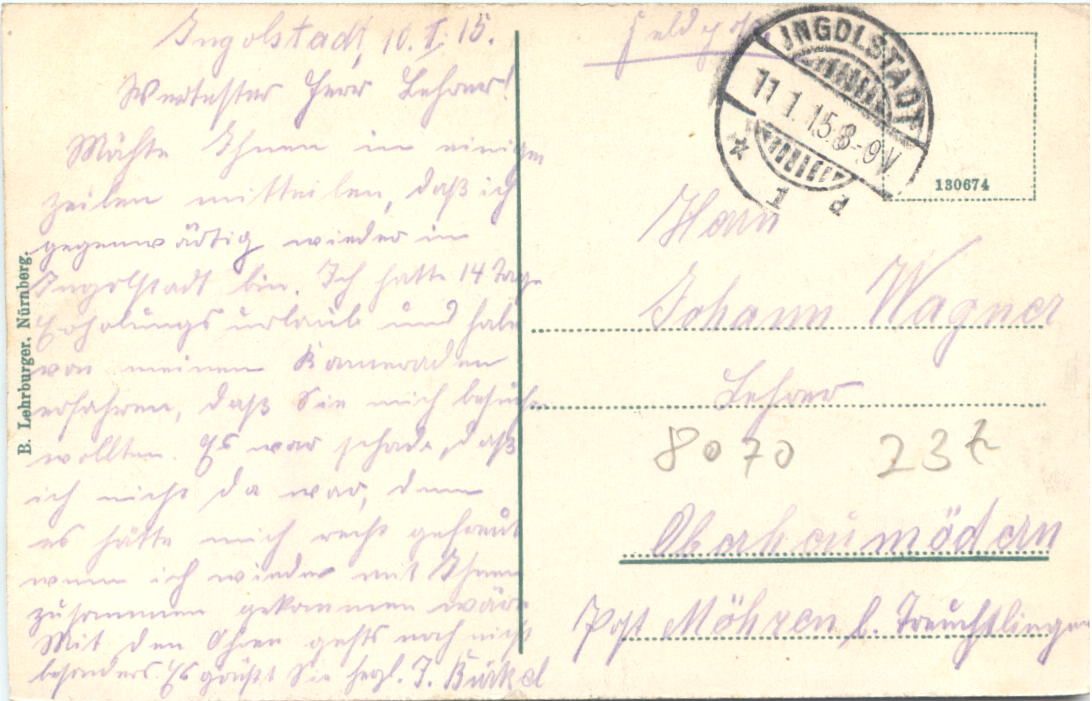 Ingolstadt, 10.I.15.
Wertester Herr Lehrer!
Möchte Ihnen in einigen
Zeilen mitteilen, daß ich
gegenwärtig wieder in
Ingolstadt bin. Ich hatte 14 Tage
Erholungsurlaub und habe
von meinen Kameraden
erfahren, daß Sie mich besuchen
wollten. Es war schade, daß
ich nicht da war, denn
es hätte mich recht gefreut
wenn ich wieder mit Ihnen
zusammen gekommen wäre
Mit den Ohren gehts noch nicht
besonders. Es grüßt Sie herzl. J. Bürkel
B. Lehrburger, Nürnberg.
Feldpost
INGOLSTADT
11.1.15 8-9V
1 d
130674
Herrn
Johann Wagner
Lehrer
8070 23
Oberheumödern
Post Möhren b. Treuchtlingen